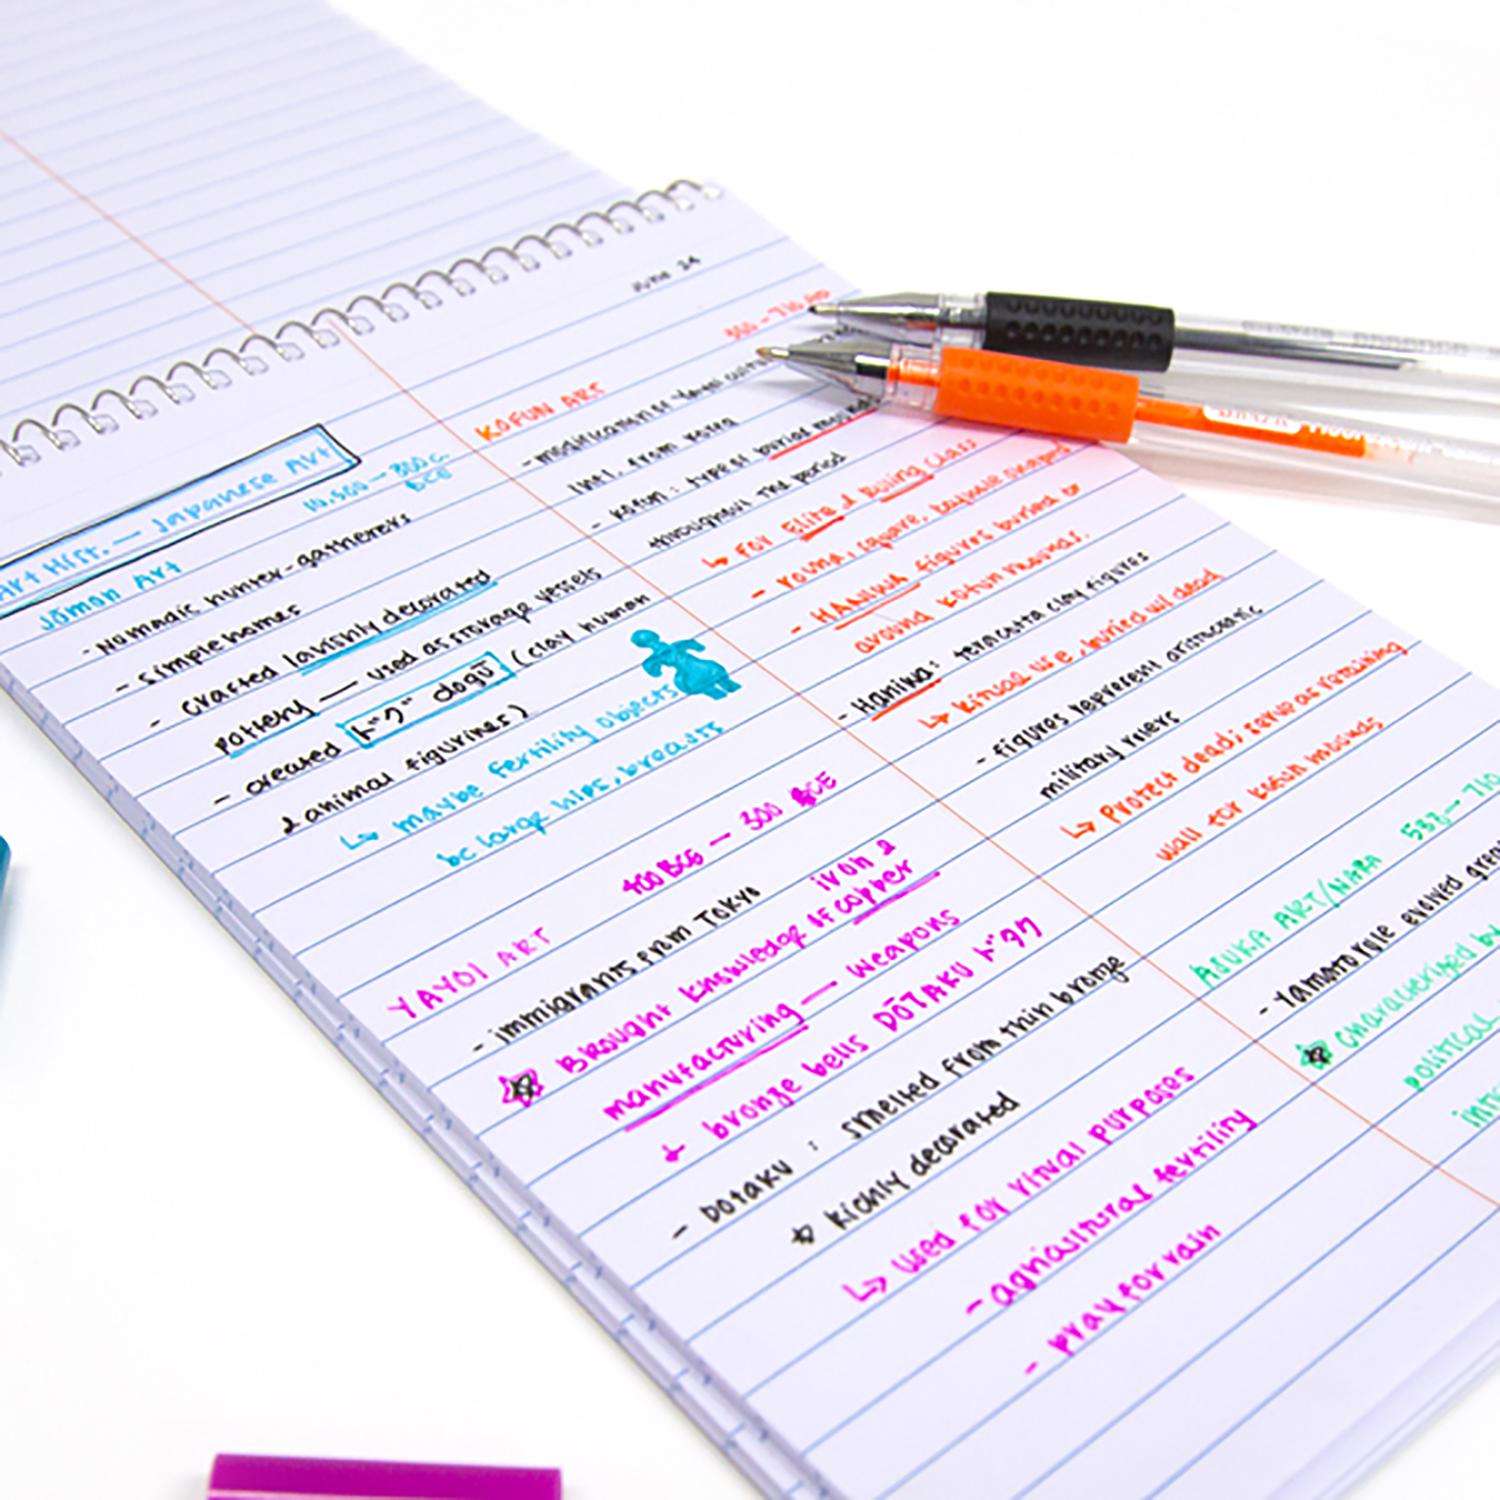 June 24
Art Hist. — Japanese Art
Jōmon Art
10,500 — 300 c.
BCE
- Nomadic hunter-gatherers
- simple homes
- crafted lavishly decorated
pottery — used as storage vessels
- created ドグ dogū (clay human
& animal figurines)
↳ maybe fertility objects
bc large hips, breasts
YAYOI ART
400 BCE — 300 BCE
- immigrants from Tokyo
iron &
☆ Brought knowledge of copper
manufacturing — weapons
& bronze bells DŌTAKU ドタク
- Dotaku : smelted from thin bronze
☆ Richly decorated
↳ used for ritual purposes
- agricultural fertility
- pray for rain
KOFUN ART
300 - 710 AD
- modification of Yayoi
infl. from Korea
- Kofun : type of burial
throughout the period
↳ For Elite & Ruling Class
- round, square, keyhole shaped
- HANIWA figures buried
around kofun mounds.
- Haniwa : teracotta clay figures
↳ Ritual use, buried w/ dead
- figures represent aristocratic
military rulers
↳ Protect dead; serve as retaining
wall for keach mounds
ASUKA ART/NARA 552 - 710
- Yamato rule evolved
☆ Characterized by
political